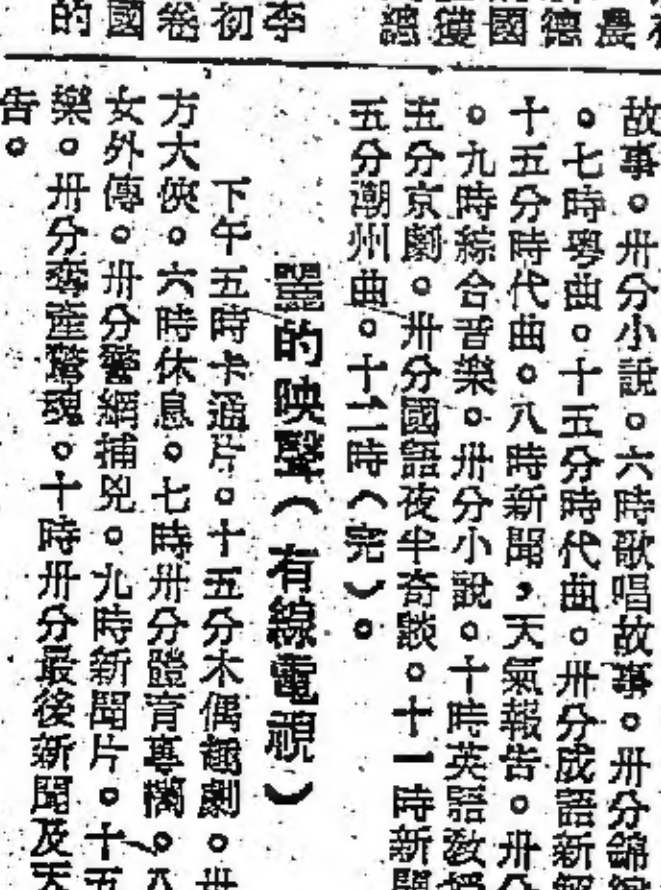 農
德
國
獲
李
初
卷
國
的
故事。卅分小說。六時歌唱故事。卅分錦
。七時粵曲。十五分時代曲。卅分成語新
十五分時代曲。八時新聞,天氣報告。卅
。九時綜合音樂。卅分小說。十時英語教授
五分京劇。卅分國語夜半奇談。十一時新聞
五分潮州曲。十二時(完)。
麗的映聲(有線電視)
下午五時卡通片。十五分木偶趣劇。卅
方大俠。六時休息。七時卅分體育專欄。八
女外傳。卅分警網捕兇。九時新聞片。十五
樂。卅分奪產驚魂。十時卅分最後新聞及天
告。